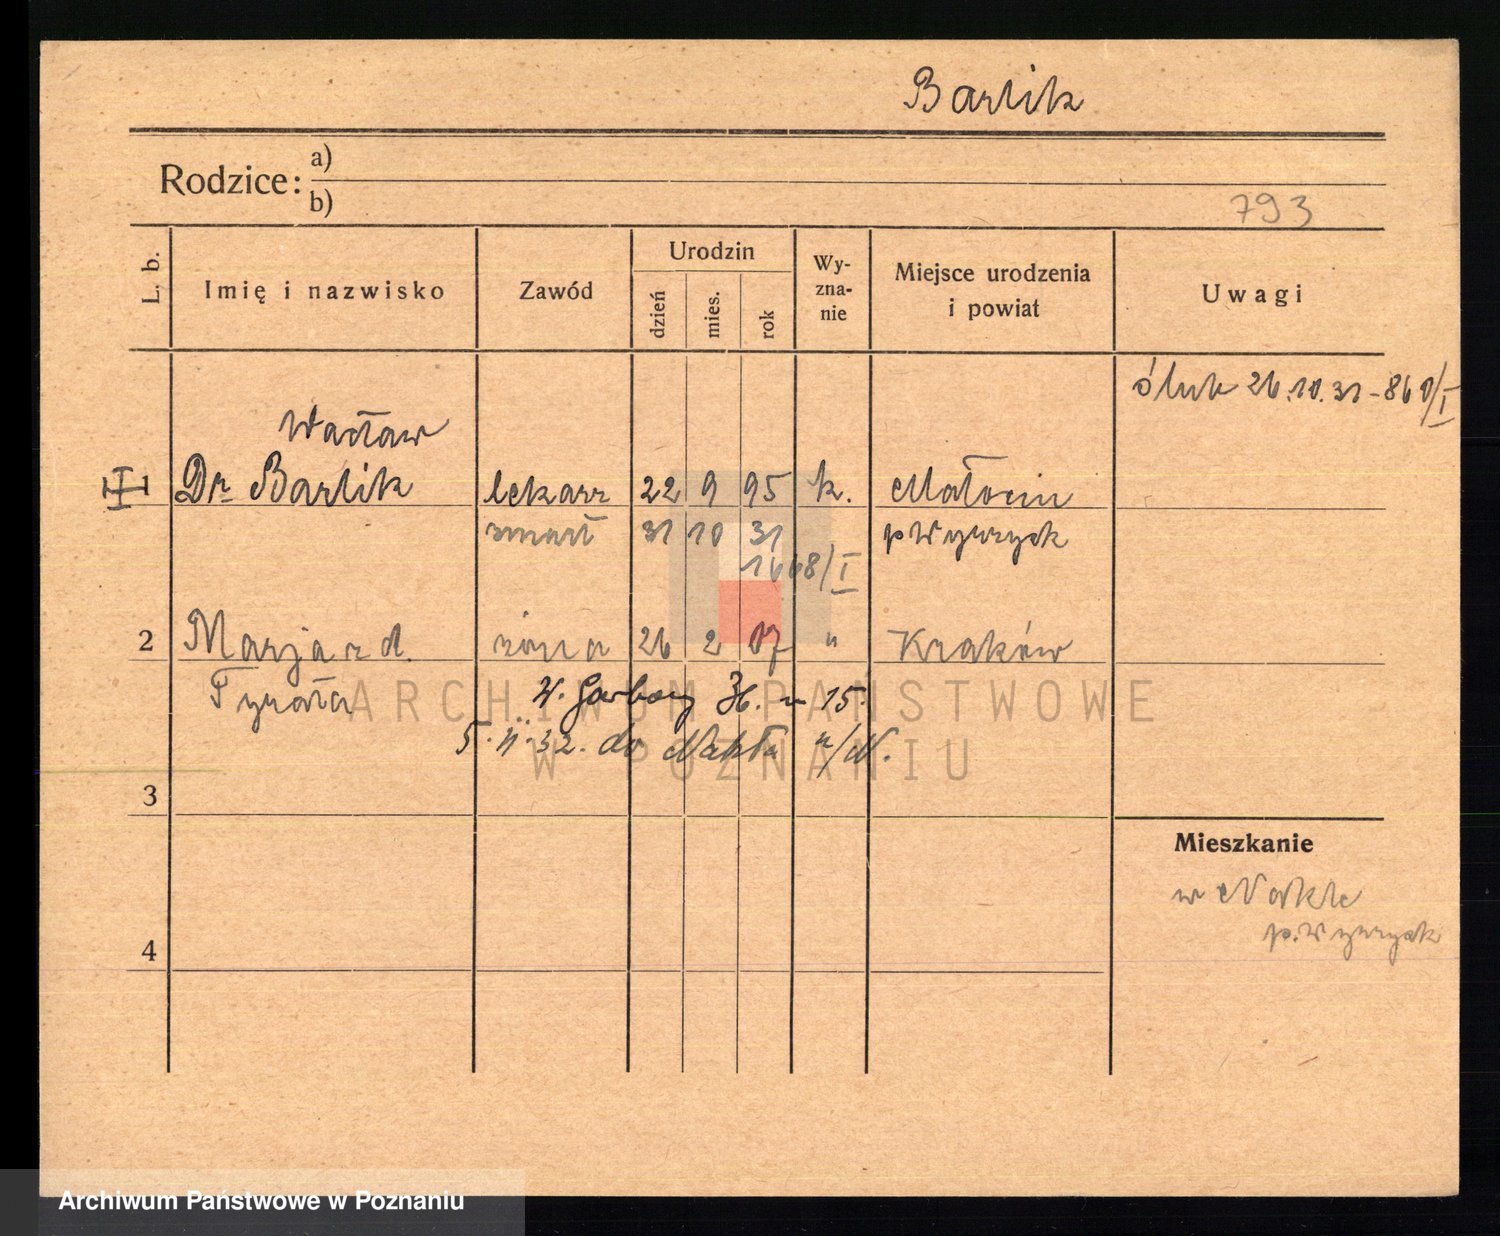 Barlik
Rodzice:
a)
b)
793
L. b.
Imię i nazwisko
Zawód
Urodzin
dzień
mies.
rok
Wy-
zna-
nie
Miejsce urodzenia
i powiat
Uwagi
ślub 26.10.31 - 860/I
Wacław
Dr Barlik lekarz 22 9 95 k. Małocin
zmarł 31 10 31 p Wyrzysk
1668/I
2 Marja z d. żona 26 2 07 " Kraków
W. Garbary 36. m 15.
5. II. 32. do Nakła n/N.
ARCHIWUM PAŃSTWOWE
W POZNANIU
3
Mieszkanie
w Nakle
p. Wyrzysk
4
Archiwum Państwowe w Poznaniu